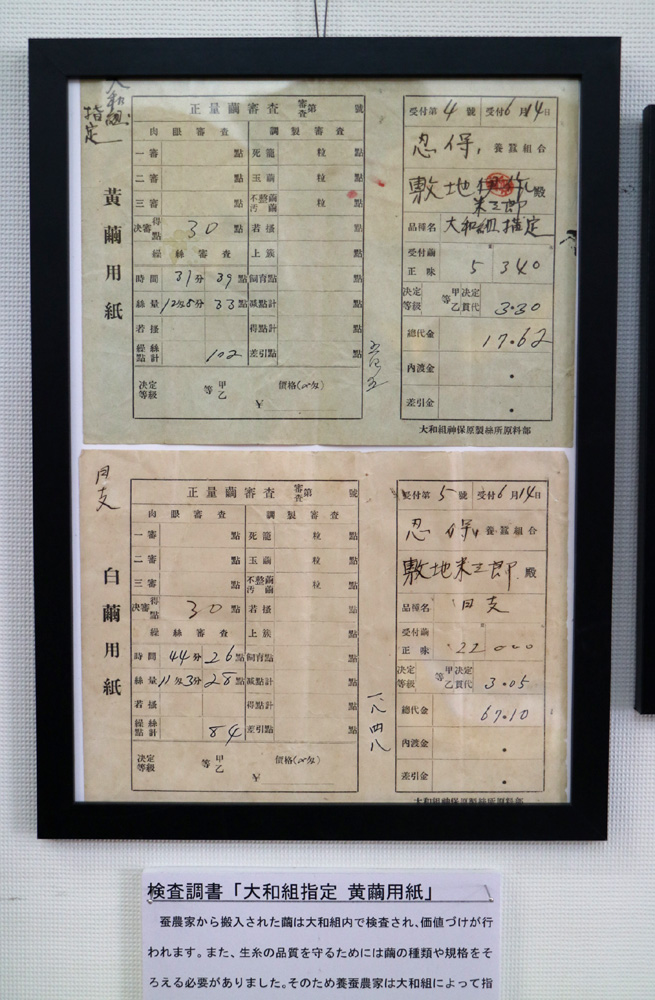 大和組
指定
黄繭用紙
正量繭審査 審査第 號
肉眼審査 調製審査
一審 點 死籠 粒 點
二審 點 玉繭 粒 點
三審 點 不整繭汚繭 粒 點
決審得點 30 點 若搔 點
繰絲審査 上簇 點
時間 31分 39點 飼育點 點
絲量 12匁8分 33點 減點計 點
若搔 得點計 點
繰絲點計 102 差引點 點
決定等級 等 甲乙 價格
受付第4號 受付6月14日
忍保 養蠶組合
敷地
米三郎 殿
品種名 大和組指定
受付繭正味 5 340
決定等級 等 甲乙 決定貫代 3.30
總代金 17.62
內渡金 .
差引金 .
大和組神保原製絲所原料部
日支
白繭用紙
正量繭審査 審査第 號
肉眼審査 調製審査
一審 點 死籠 粒 點
二審 點 玉繭 粒 點
三審 點 不整繭汚繭 粒 點
決審得點 30 點 若搔 點
繰絲審査 上簇 點
時間 44分 26點 飼育點 點
絲量 11匁3分 28點 減點計 點
若搔 得點計 點
繰絲點計 84 差引點 點
決定等級 等 甲乙 價格
一八四八
受付第5號 受付6月14日
忍保 養蠶組合
敷地米三郎 殿
品種名 日支
受付繭正味 22 000
決定等級 等 甲乙 決定貫代 3.05
總代金 67.10
內渡金 .
差引金 .
大和組神保原製絲所原料部
検査調書「大和組指定 黄繭用紙」
蚕農家から搬入された繭は大和組内で検査され、価値づけが行
われます。また、生糸の品質を守るためには繭の種類や規格をそ
ろえる必要がありました。そのため養蚕農家は大和組によって指